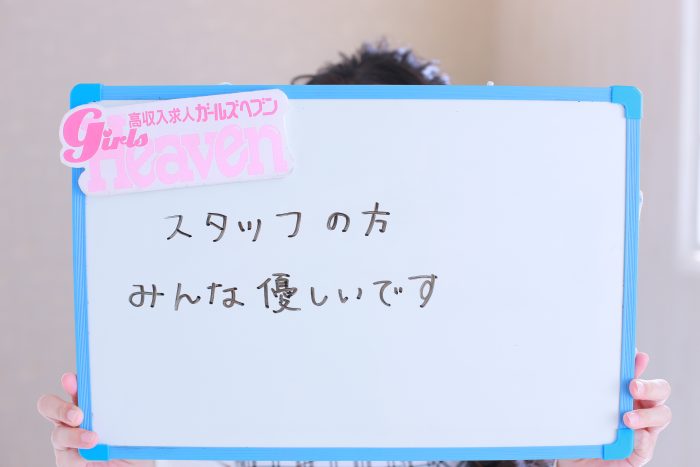 高収入求人ガールズヘブン
Girls
Heaven
スタッフの方
みんな優しいです